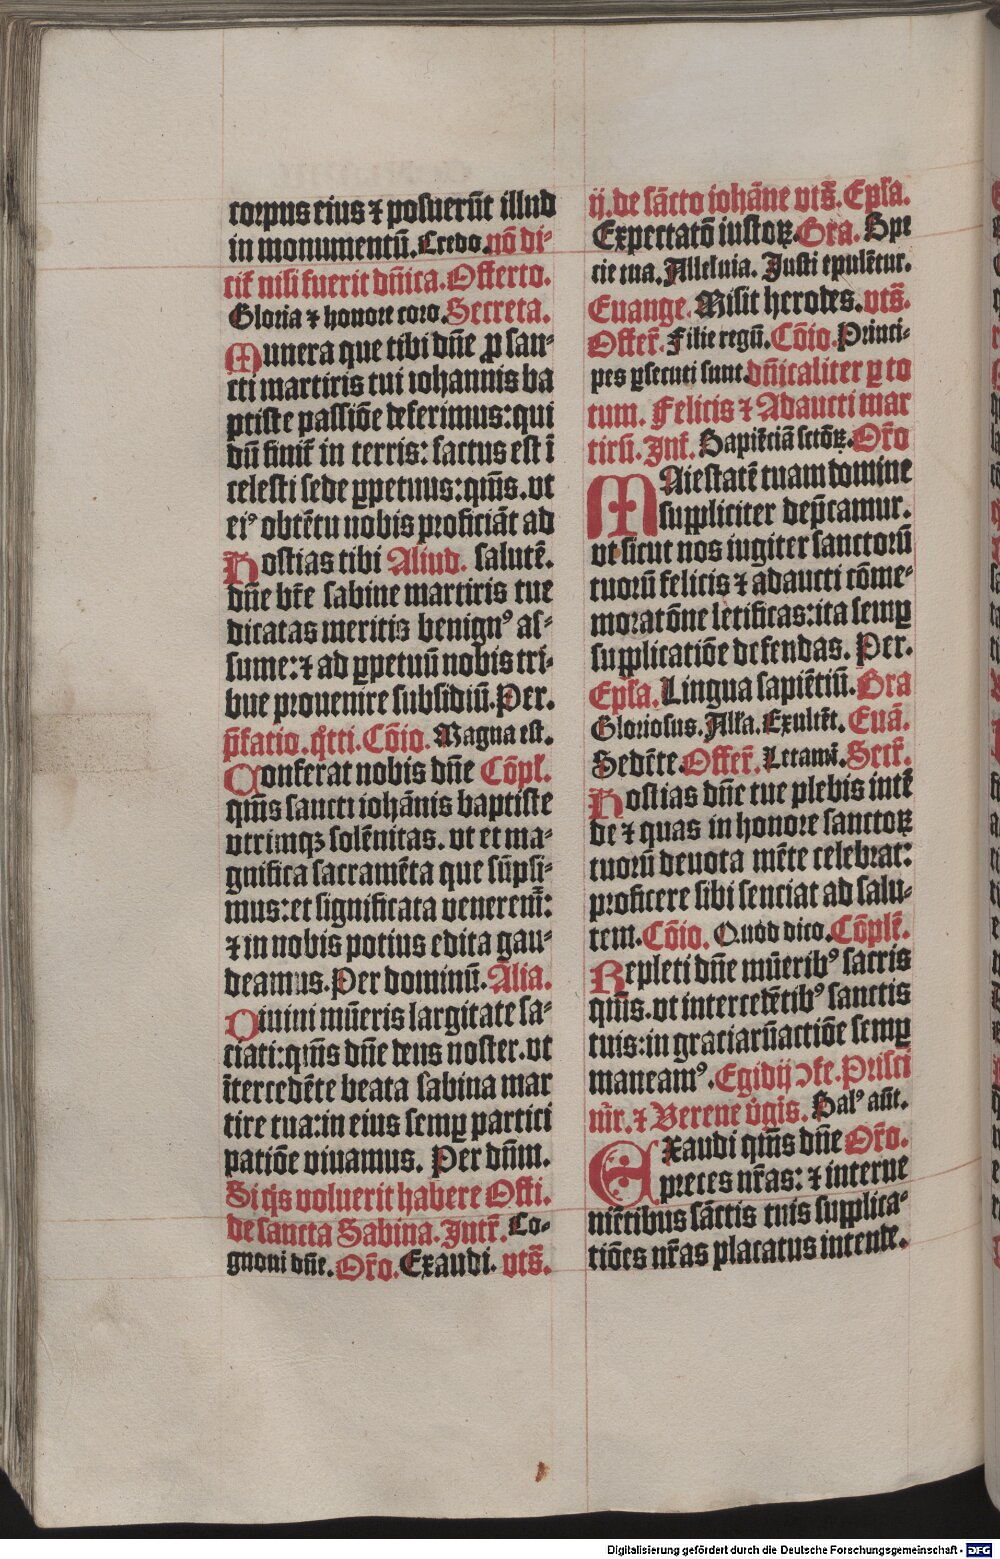 corpus eius ⁊ posuerūt illud
in monumentū. Credo. nō di-
cit̄ nisi fuerit dn̄ica. Offerto.
Gloria ⁊ honore coro. Secreta.
Munera que tibi dn̄e ꝓ san-
cti martiris tui iohannis ba
ptiste passiōe deferimus: qui
dū finit̄ in terris: factus est ī
celesti sede ꝑpetuus: qm̄s. vt
eiꝰ obtētu nobis proficiāt ad
Hostias tibi Aliud. salutē.
dn̄e bt̄e sabine martiris tue
dicatas meritis benignꝰ as-
sume: ⁊ ad ꝑpetuū nobis tri-
bue prouenire subsidiū. Per.
p̄fatio. q̄tti. Cōio. Magna est.
Conferat nobis dn̄e Cōpl̄.
qm̄s sancti iohānis baptiste
vtrimqꝫ solēnitas. vt et ma-
gnifica sacramēta que sūpsi-
mus: et significata veneremr̄:
⁊ in nobis potius edita gau-
deamus. Per dominū. Alia.
Diuini mūeris largitate sa-
ciati: qm̄s dn̄e deus noster. vt
ītercedēte beata sabina mar
tire tua: in eius semꝑ partici
patiōe viuamus. Per dn̄m.
Si q̄s voluerit habere Offi.
de sancta Sabina. Intr̄. Co-
gnoui dn̄e. Or̄o. Exaudi. vts̄.
ij. de sācto iohāne vts̄. Epl̄a.
Expectatō iustoꝝ. Gra. Spe
cie tua. Alleluia. Justi epulētur.
Euange. Misit herodes. vts̄.
Offer̄. Filie regū. Cōio. Princi-
pes ꝑsecuti sunt. dn̄icaliter ꝑ to
tum. Felicis ⁊ Adaucti mar
tirū. Int̄. Sapiētiā sctōꝝ. Or̄o
MAiestatē tuam domine
suppliciter dep̄camur.
vt sicut nos iugiter sanctorū
tuorū felicis ⁊ adaucti cōme-
moratōne letificas: ita semꝑ
supplicatiōe defendas. Per.
Epl̄a. Lingua sapiētiū. Gra
Gloriosus. All̄a. Exultēt. Euā.
Sedēte. Offer̄. Letamī. Secr̄.
Hostias dn̄e tue plebis intē
de ⁊ quas in honore sanctoꝝ
tuorū deuota mēte celebrat:
proficere sibi senciat ad salu-
tem. Cōio. Quod dico. Cōplē.
Repleti dn̄e mūeribꝰ sacris
qm̄s. vt intercedētibꝰ sanctis
tuis: in graciarūactiōe semꝑ
maneamꝰ. Egidij ↄfe. Prisci
mr̄. ⁊ Verene v̄gis. Salꝰ aūt.
Exaudi qm̄s dn̄e Or̄o.
preces nr̄as: ⁊ interue
niētibus sāctis tuis supplica-
tiōes nr̄as placatus intende.
Digitalisierung gefördert durch die Deutsche Forschungsgemeinschaft - DFG